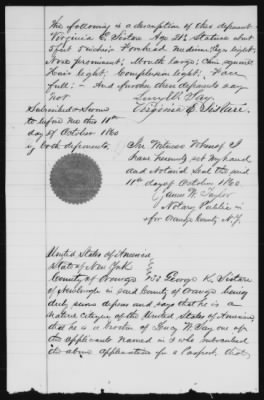 The following is a description of this deponent
Virginia C. Sistare Age 21, Stature about
5 feet 5 inches Forehead medium, Eyes light,
Nose prominent; Mouth large; Chin
Hair light; Complexion light; Face
full; And further these deponents say
not
Lucy W. Fay
Virginia C. Sistare
Subscribed & Sworn
to before me this 11th
day of October 1860
by both deponents.
In Witness Whereof I
have hereunto set my hand
and Notarial Seal this said
11th day of October 1860
James W. Taylor
Notary Public in
& for Orange County N.Y.
United States of America
State of New York
County of Orange ss George K. Sistare
of Newburgh in said County of Orange being
duly sworn deposes and says that he is a
Native Citizen of the United States of America
that he is a brother of Lucy W. Fay one of
the applicants named in & who subscribed
the above application for a Passport, that